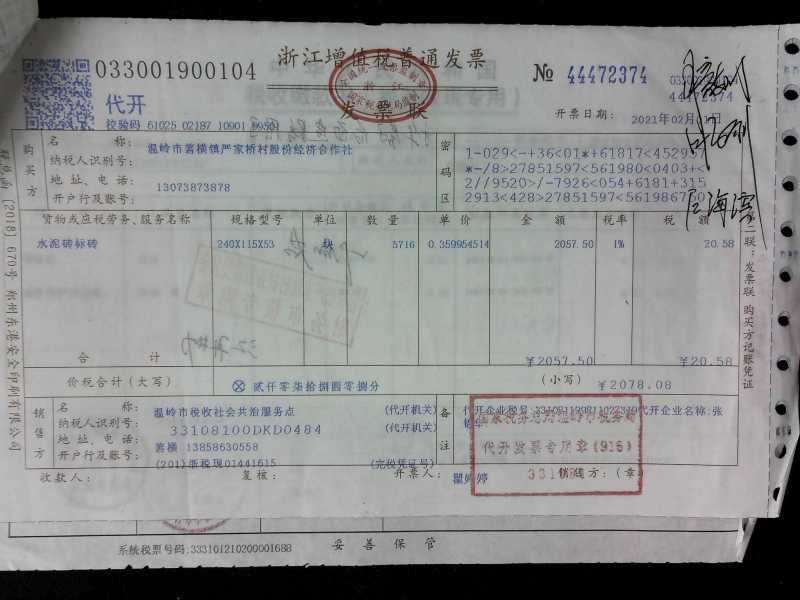 浙江增值税普通发票
033001900104
代开
发票联
№ 44472374
44472374
校验码 61025 02187 10901 99501
开票日期: 2021年02月01日
购买方
名称: 温岭市箬横镇严家桥村股份经济合作社
纳税人识别号:
地址、电话: 13073873878
开户行及账号:
密码区
1-029<-+36<01*+61817<452957
*-/8>27851597<561980<0403+<
2//9520>/-7926<054+6181+315
2913<428>27851597<56198675
货物或应税劳务、服务名称 规格型号 单位 数量 单价 金额 税率 税额
水泥砖标砖 240X115X53 块 5716 0.359954514 2057.50 1% 20.58
合计 ¥2057.50 ¥20.58
价税合计(大写) ⊗贰仟零柒拾捌圆零捌分 (小写) ¥2078.08
销售方
名称: 温岭市税收社会共治服务点 (代开机关)
纳税人识别号: 33108100DKD0484 (代开机关)
地址、电话: 箬横 13858630558
开户行及账号: (201)浙税现01441615 (完税凭证号)
备注
代开企业名称:张
代开发票专用章(916)
收款人: 复核: 开票人: 瞿婷婷 销售方:(章)
第二联:发票联 购买方记账凭证
〔2018〕670号 杭州东港安全印刷有限公司
系统税票号码:333101210200001688 妥善保管